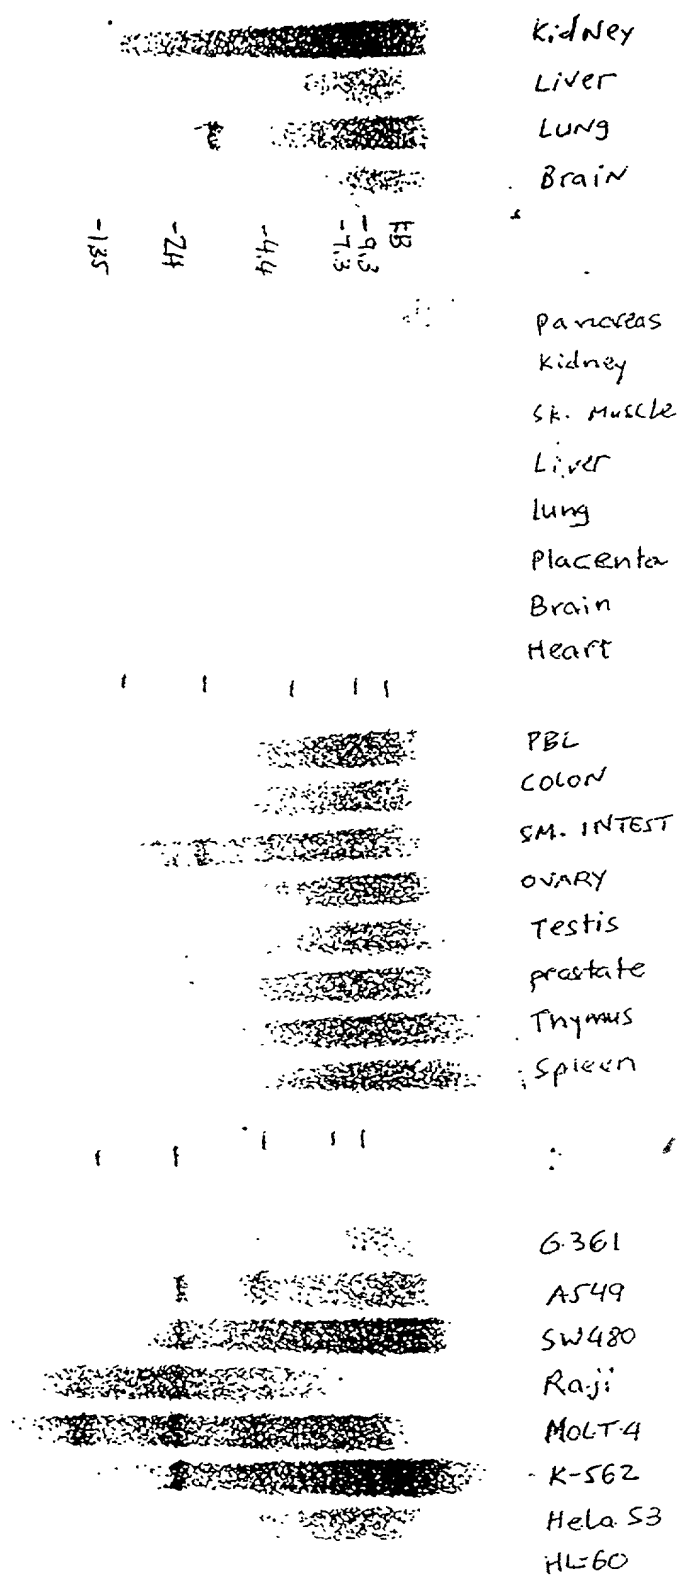 Kidney
Liver
Lung
Brain
KB
-9.3
-7.3
-4.4
-2.4
-1.35
Pancreas
Kidney
SK. Muscle
Liver
Lung
Placenta
Brain
Heart
PBL
COLON
SM. INTEST
OVARY
Testis
prostate
Thymus
Spleen
G.361
A549
SW480
Raji
MOLT-4
K-562
Hela S3
HL-60